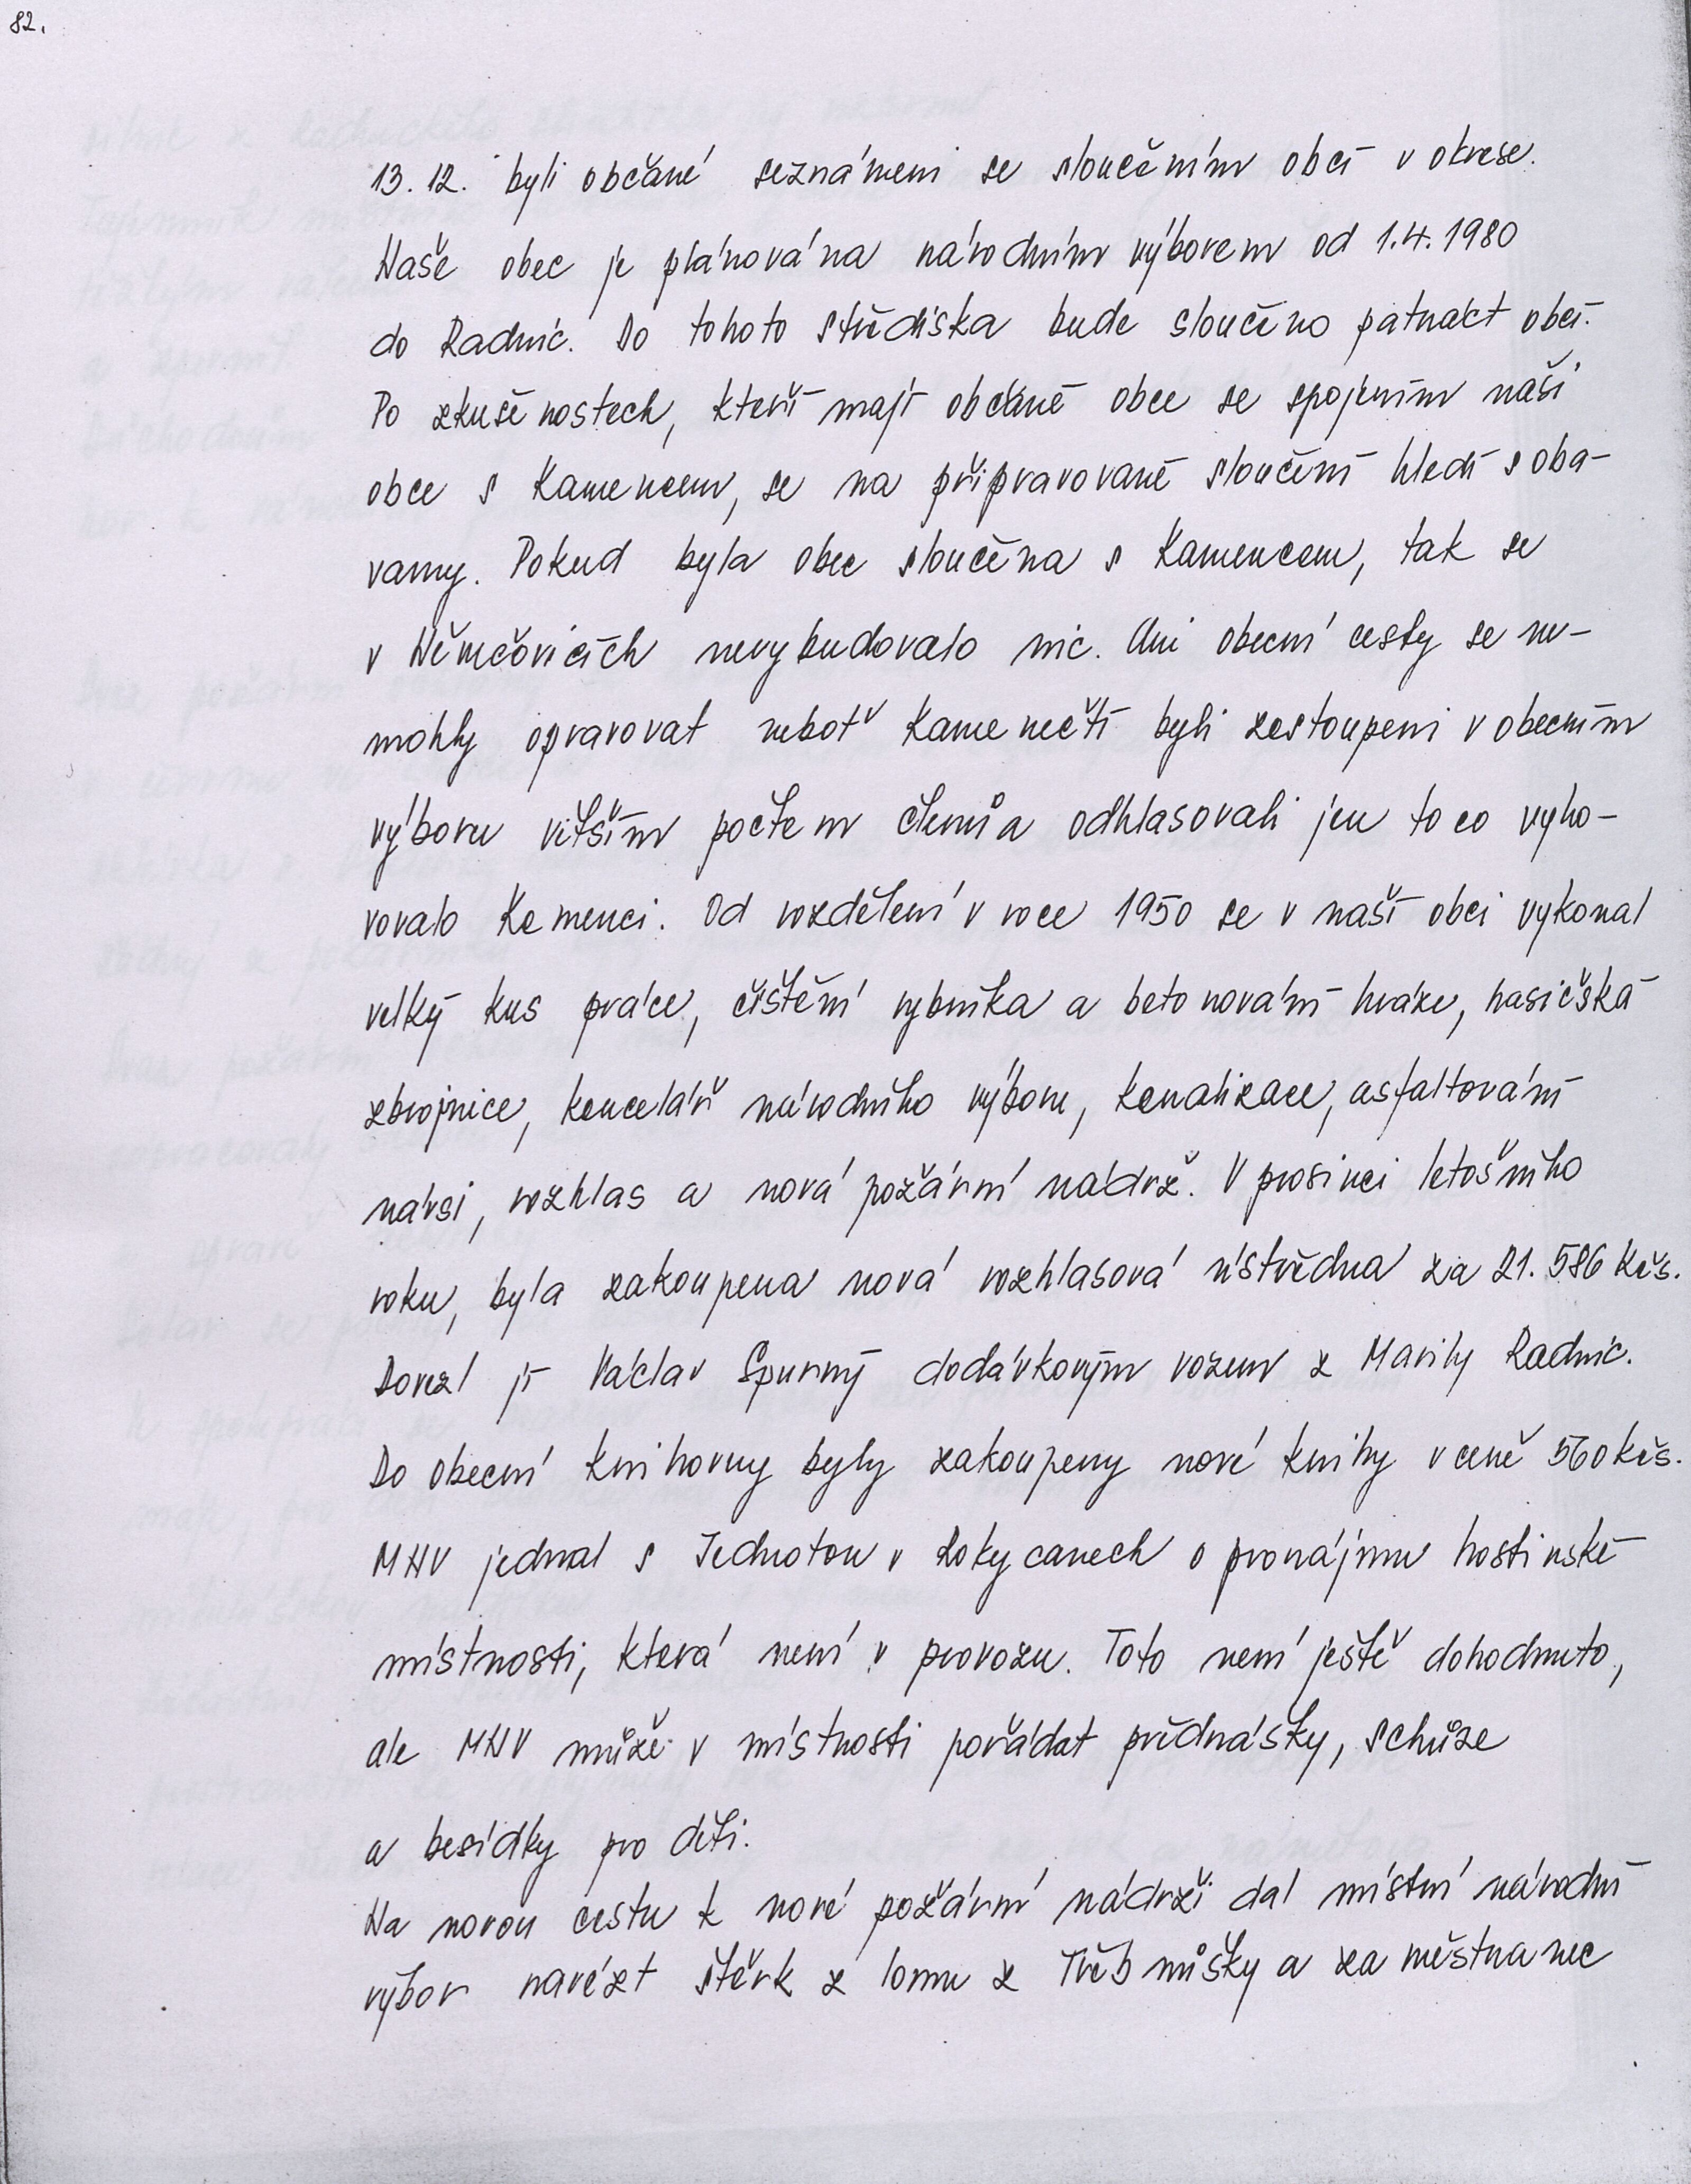 82.
13. 12. byli občané seznámeni se sloučením obcí v okrese.
Naše obec je plánována národním výborem od 1.4.1980
do Radnic. Do tohoto střediska bude sloučeno patnáct obcí.
Po zkušenostech, kteří mají občané obce se spojením naší
obce s Kamencem, se na připravované sloučení hledí s oba-
vamy. Pokud byla obec sloučena s Kamencem, tak se
v Němčovicích nevybudovalo nic. Ani obecní cesty se ne-
mohly opravovat neboť Kamenečtí byli zastoupeni v obecním
výboru větším počtem členů a odhlasovali jen to co vyho-
vovalo Kamenci. Od rozdělení v roce 1950 se v naší obci vykonal
velký kus práce, čištění rybníka a betonování hráze, hasičská
zbrojnice, kancelář národního výboru, kanalizace, asfaltování
návsi, rozhlas a nová požární nádrž. V prosinci letošního
roku, byla zakoupena nová rozhlasová ústředna za 21.586 Kčs.
Dovezl jí Václav Spurný dodávkovým vozem z Marily Radnic.
Do obecní knihovny byly zakoupeny nové knihy v ceně 560 Kčs.
MNV jednal s Jednotou v Rokycanech o pronájmu hostinské
místnosti, která není v provozu. Toto není ještě dohodnuto,
ale MNV může v místnosti pořádat přednášky, schůze
a besídky pro děti.
Na novou cestu k nové požární nádrži dal místní národní
výbor navézt štěrk z lomu z Třebnušky a zaměstnanec